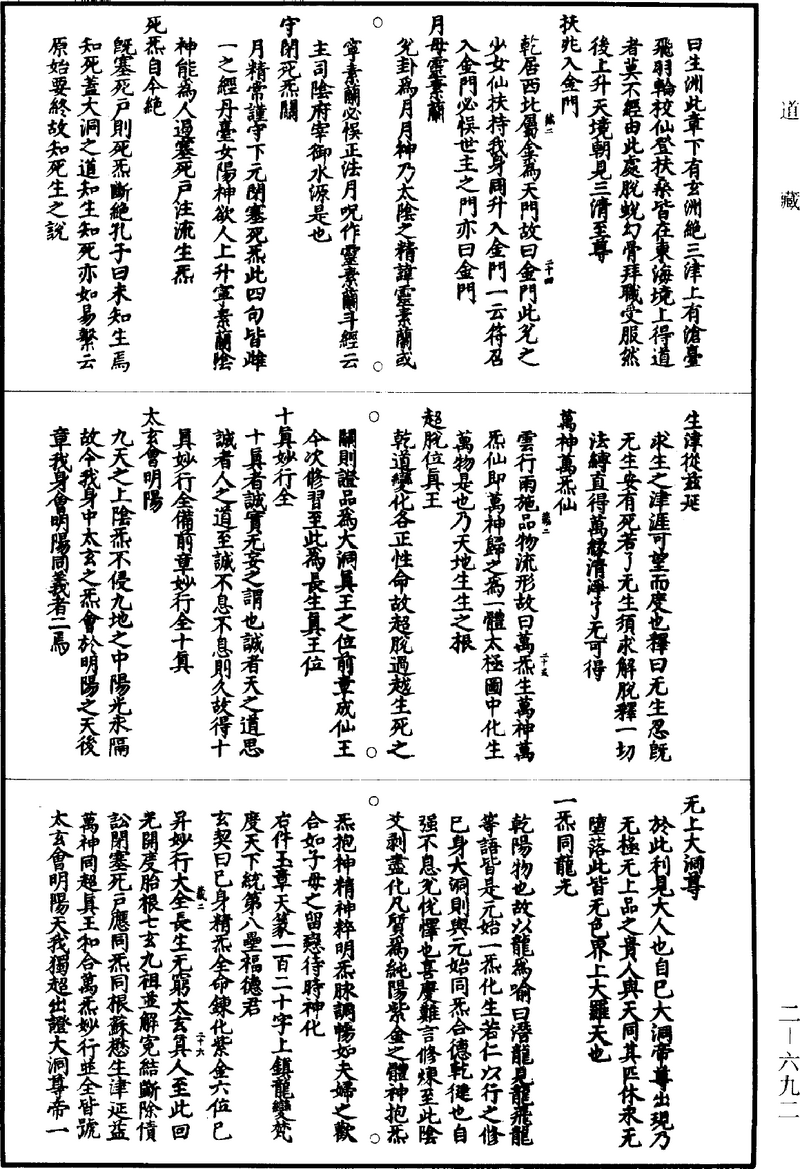 道藏
曰生洲此章下有玄洲絕三津上有滄臺
飛羽輪校仙登扶桑皆在東海境上得道
者莫不經由此處脫蛻幻骨拜職受服然
後上升天境朝見三清至尊
扶兆入金門
乾居西北屬金為天門故曰金門此兌之
少女仙扶持我身同升入金門一云符召
入金門必悞世主之門亦曰金門
月母靈素蘭
兌卦為月月神乃太陰之精諱靈素蘭或
寧素蘭必悞正法月呪作靈素蘭斗經云
主司陰府宰御水源是也
守閉死炁關
月精常謹守下元閉塞死炁此四句皆雌
一之經丹臺女陽神欲人上升寧素蘭陰
神能為人過塞死戶注流生炁
死炁自今絕
旣塞死戶則死炁斷絕孔子曰未知生焉
知死蓋大洞之道知生知死亦如易繫云
原始要終故知死生之說
生津從茲延
求生之津涯可望而度也釋曰无生忍旣
无生安有死若了无生須求解脫釋一切
法縛直得萬緣清淨了无可得
萬神萬炁仙
雲行雨施品物流形故曰萬炁生萬神萬
炁仙即萬神歸之為一體太極圖中化生
萬物是也乃天地生生之根
超脫位真王
乾道變化各正性命故超脫過越生死之
關則證品為大洞真王之位前章成仙王
今次修習至此為長生真王位
十真妙行全
十真者誠實无妄之謂也誠者天之道思
誠者人之道至誠不息不息則久故得十
真妙行全備前章妙行全十真
太玄會明陽
九天之上陰炁不侵九地之中陽光未隔
故今我身中太玄之炁會於明陽之天後
章我身會明陽同義者二焉
无上大洞尊
於此利見大人也自巳大洞帝尊出現乃
无極无上品之貴人與天同其匹休永无
墮落此皆无色界上大羅天也
一炁同龍元
乾陽物也故以龍為喻曰潛龍見龍飛龍
等語皆是元始一炁化生若仁以行之修
巳身大洞則與元始同炁合德乾健也自
强不息兌悅懌也喜慶難言修煉至此陰
爻剥盡化凡質為純陽紫金之體神抱炁
炁抱神精神粹明炁脉調暢如夫婦之歡
合如子母之留戀待時神化
右件玉章天篆一百二十字上鎮龍變梵
度天下統第八壘福德君
玄契曰巳身精炁全命鍊化紫金六位巳
昇妙行大全長生无窮太玄真人至此回
光開度胎根七玄九祖並解寃結斷除債
訟閉塞死戶應同炁同根蘇懋生津延益
萬神同超真王和合萬炁妙行並全皆號
太玄會明陽天我獨超出證大洞尊帝一
二－六九二